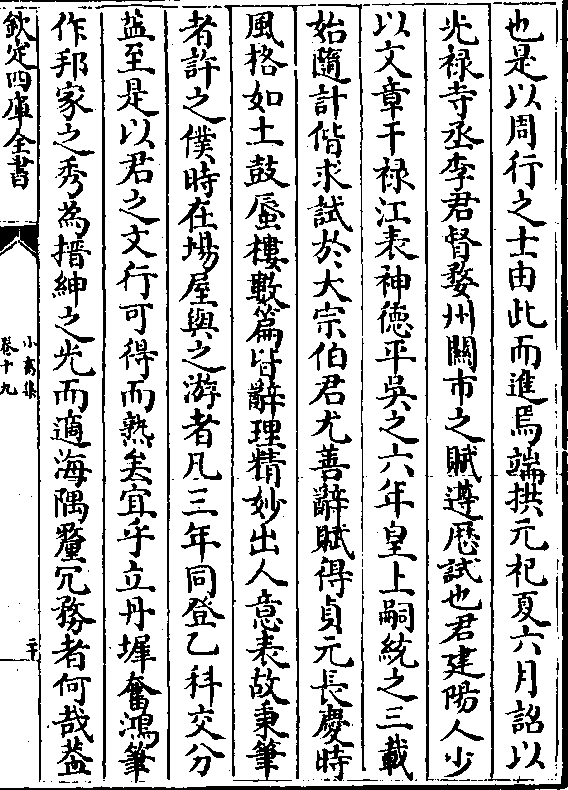 也是以周行之士由此而進焉端拱元祀夏六月詔以
光祿寺丞李君督婺州關市之賦遵厯試也君建陽人少
以文章干禄江表神徳平吳之六年皇上嗣統之三載
始隨計偕求試於大宗伯君尤善辭賦得貞元長慶時
風格如土鼓蜃樓數篇皆辭理精妙出人意表故秉筆
者許之僕時在場屋與之游者凡三年同登乙科交分
益至是以君之文行可得而熟矣宜乎立丹墀奮鴻筆
作邦家之秀為搢紳之光而適海隅釐冗務者何哉葢
欽定四庫全書
小畜集
卷十九
二十